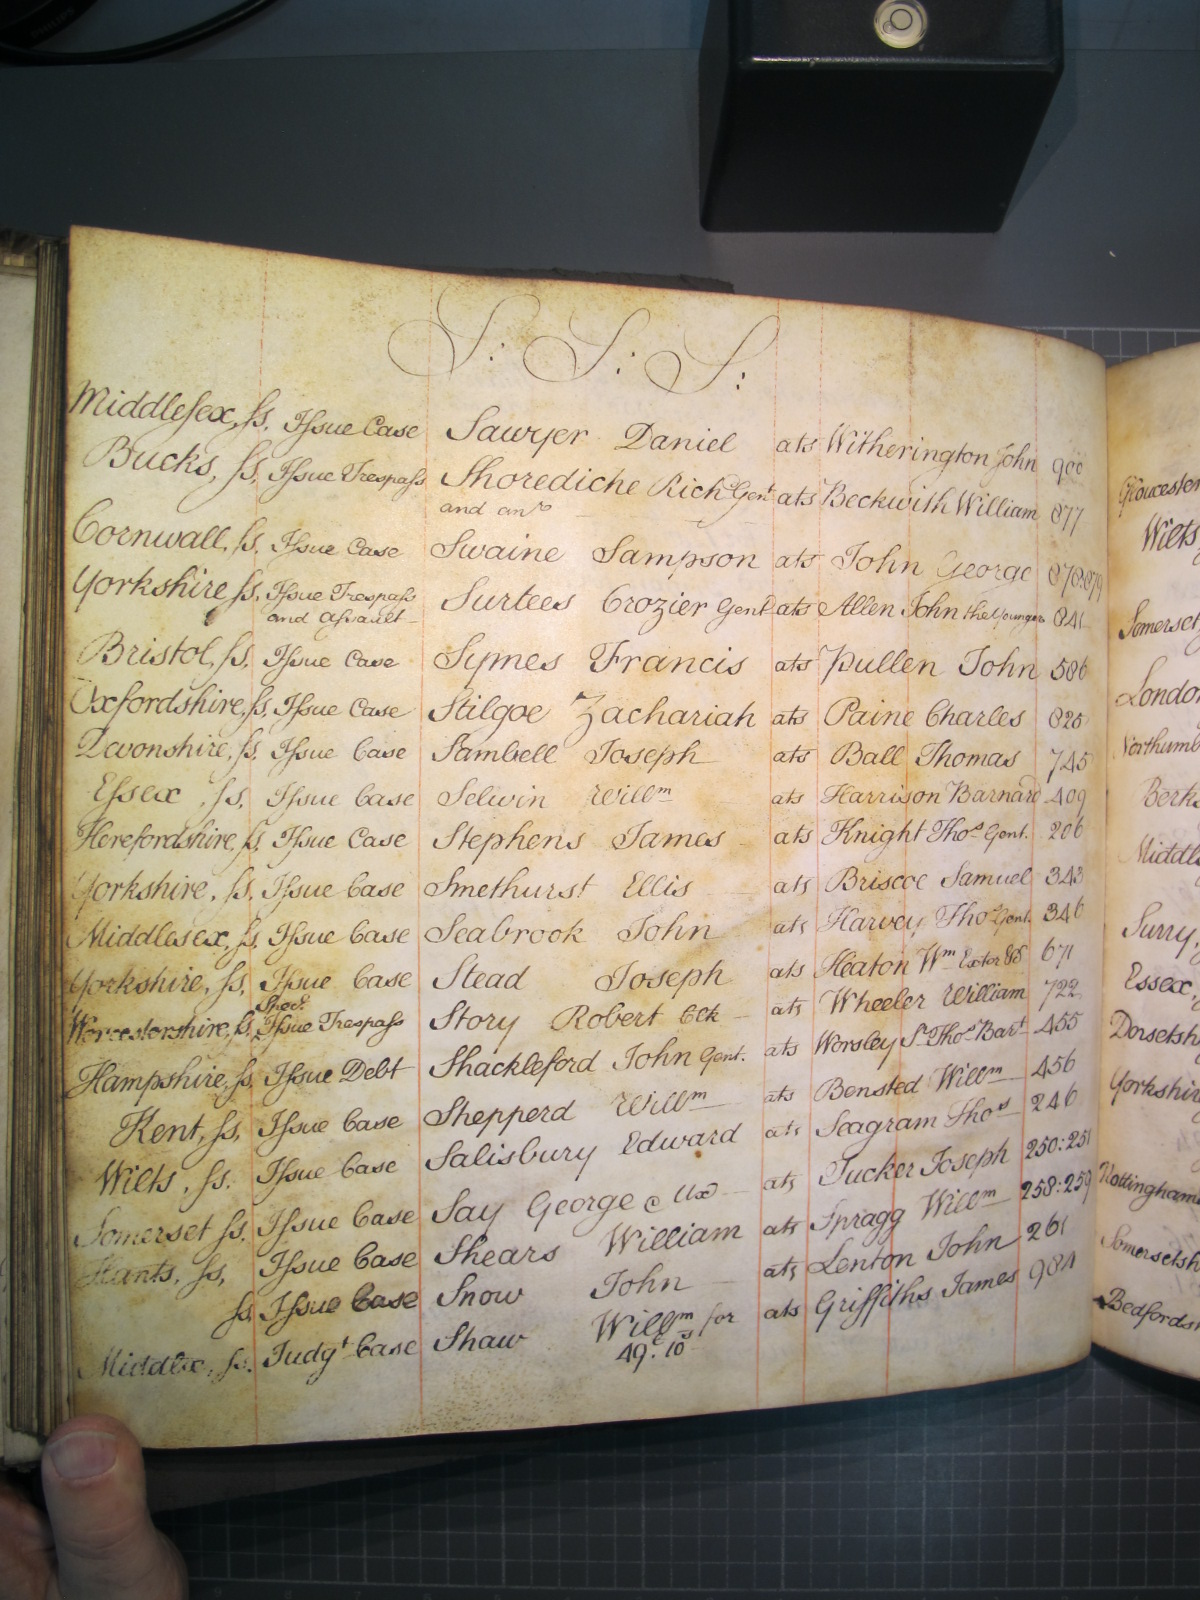 S: S: S:
Middlesex, ss, Issue Case Sawyer Daniel ats Witherington John 900
Bucks, ss, Issue Trespass Shorediche Richd Gent ats Beckwith William 877
and anr
Cornwall, ss, Issue Case Swaine Sampson ats John George 878:879
Yorkshire ss, Issue Trespass Surtees Crozier Gent ats Allen John the Younger 841
and Assault
Bristol, ss, Issue Case Symes Francis ats Pullen John 586
Oxfordshire, ss, Issue Case Stilgoe Zachariah ats Paine Charles 825
Devonshire, ss, Issue Case Sambell Joseph ats Ball Thomas 745
Essex, ss, Issue Case Selwin Willm ats Harrison Barnard 409
Herefordshire, ss, Issue Case Stephens James ats Knight Thos Gent. 206
Yorkshire, ss, Issue Case Smethurst Ellis ats Briscoe Samuel 343
Middlesex, ss, Issue Case Seabrook John ats Harvey Thos Gent. 346
Yorkshire, ss, Issue Case Stead Joseph ats Heaton Wm Exctor &c 671
Specl
Worcestershire, ss, Issue Trespass Story Robert Clk ats Wheeler William 722
Hampshire, ss, Issue Debt Shackleford John Gent. ats Worsley Sr Thos Bart 455
Kent, ss, Issue Case Shepperd Willm ats Bensted Willm 456
Wilts, ss. Issue Case Salisbury Edward ats Seagram Thos 246
Somerset ss. Issue Case Say George & Ux ats Tucker Joseph 250:251
Hants, ss, Issue Case Shears William ats Spragg Willm 258:259
ss, Issue Case Snow John ats Lenton John 261
Middlx, ss. Judgt Case Shaw Willm for ats Griffiths James 984
49£. 10s
Gloucester
Wilts
Somerset
London
Northumb
Berks
Middle
Surry,
Essex,
Dorsetsh
Yorkshir
Nottingham
Somersetsh
Bedfordsh
PHILIPS